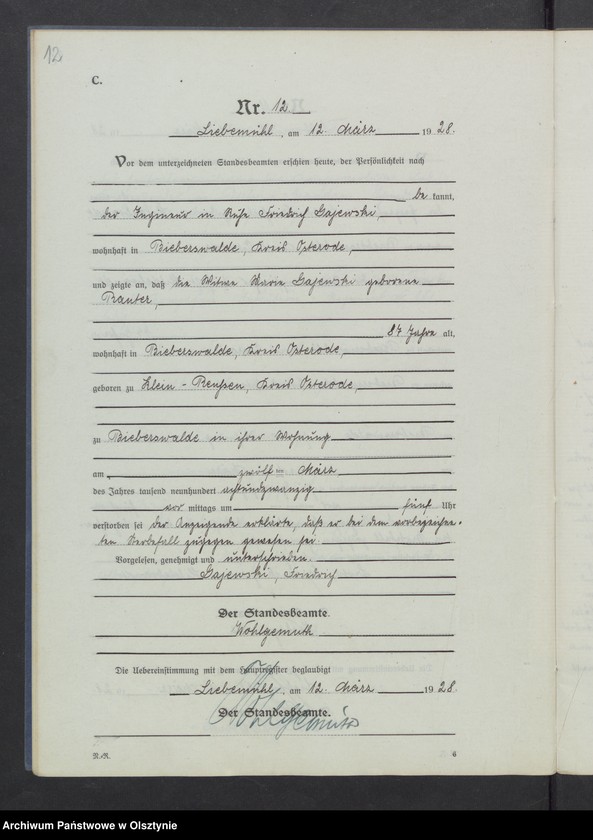 12
C.
Nr. 12
Liebemühl, am 12. März 1928.
Vor dem unterzeichneten Standesbeamten erschien heute, der Persönlichkeit nach
be kannt,
der Ingenieur in Ruhe Friedrich Gajewski,
wohnhaft in Bieberswalde, Kreis Osterode,
und zeigte an, daß die Witwe Marie Gajewski geborene
Ranter,
84 Jahre alt,
wohnhaft in Bieberswalde, Kreis Osterode,
geboren zu Klein-Reußen, Kreis Osterode,
zu Bieberswalde in ihrer Wohnung
am zwölften März
des Jahres tausend neunhundert achtundzwanzig
vor mittags um fünf Uhr
verstorben sei der Anzeigende erklärte, daß er bei dem vorbezeichne-
ten Sterbefall zugegen gewesen sei.
Vorgelesen, genehmigt und unterschrieben.
Gajewski, Friedrich
Der Standesbeamte.
Wohlgemuth
Die Uebereinstimmung mit dem Hauptregister beglaubigt
Liebemühl, am 12. März 1928.
Der Standesbeamte.
Wohlgemuth
R./R.
6
Archiwum Państwowe w Olsztynie